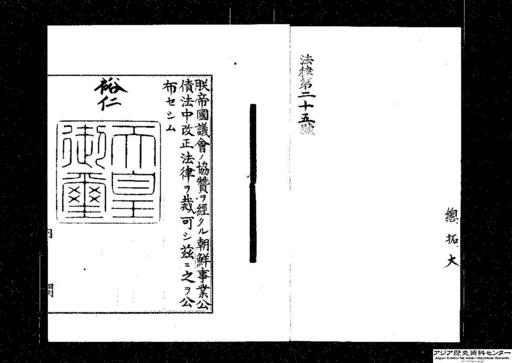 法律第二十五號
總 拓 大
朕帝國議會ノ協贊ヲ經タル朝鮮事業公
債法中改正法律ヲ裁可シ茲ニ之ヲ公
布セシム
裕仁
天皇
御璽
内 閣
アジア歴史資料センター
Japan Center for Asian Historical Records